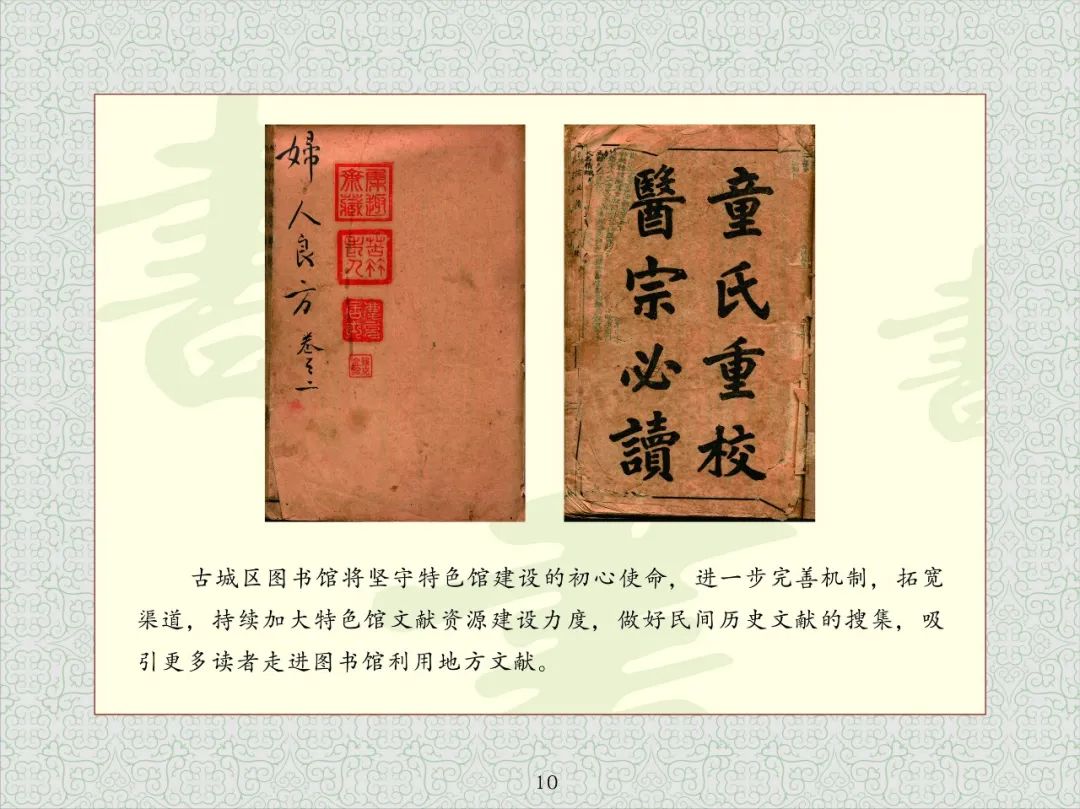 婦人良方 卷之一
童氏重校
醫宗必讀
古城区图书馆将坚守特色馆建设的初心使命，进一步完善机制，拓宽
渠道，持续加大特色馆文献资源建设力度，做好民间历史文献的搜集，吸
引更多读者走进图书馆利用地方文献。
10